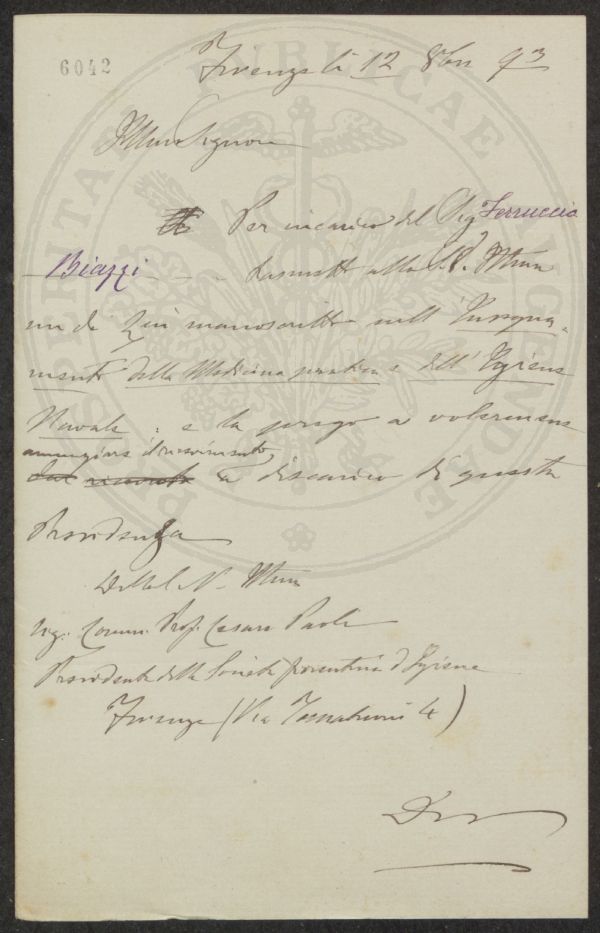 6042
Firenze li 12 8bre 93
Illmo Signore
Per incarico del Sig Ferruccio
Biazzi trasmetto alla S. V. Illma
un di Lui manoscritto sull' Insegna-
mento della Medicina pratica e dell' Igiene
Navale: e la prego a volermene
annunziare il ricevimento,
a discarico di questa
Presidenza
Della S. V. Illma
Sig. Comm. Prof. Cesare Paoli
Presidente della Società fiorentina d'Igiene
Firenze (Via 4)
PROSPERITATI PUBLICAE AUGENDAE